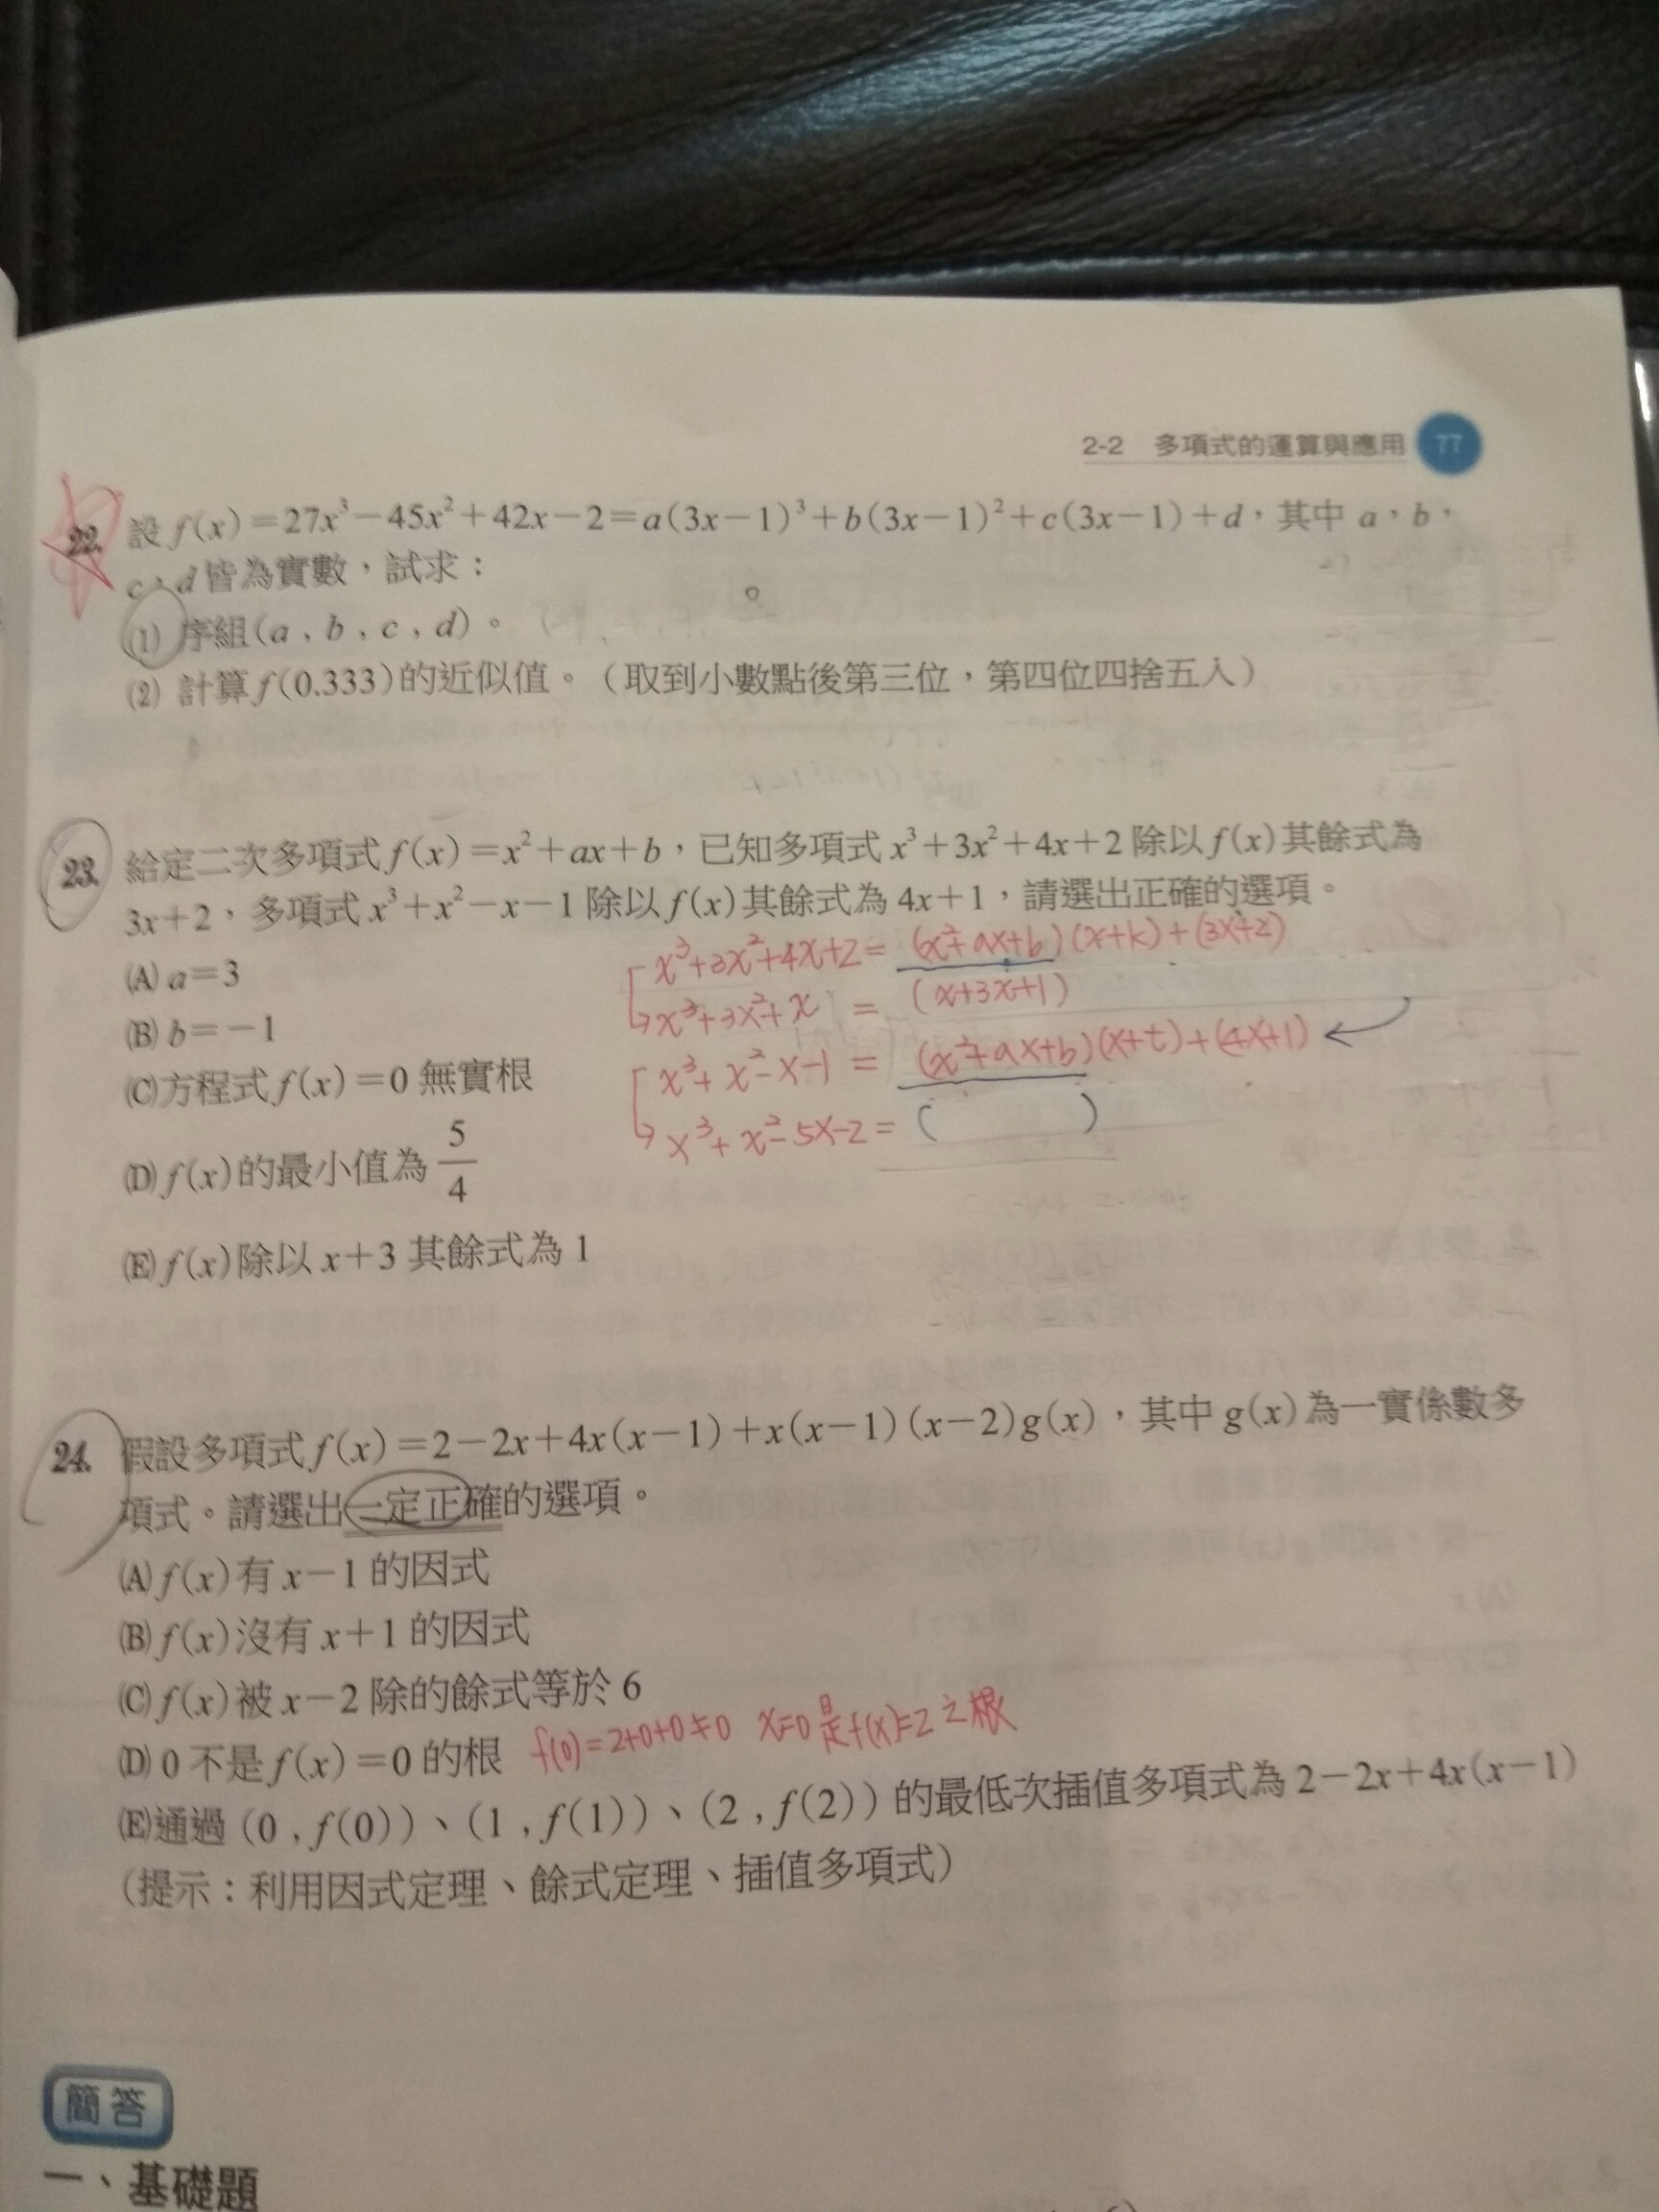 2-2 多項式的運算與應用 77
22. 設 f(x)=27x³-45x²+42x-2=a(3x-1)³+b(3x-1)²+c(3x-1)+d,其中 a,b,
c,d 皆為實數,試求:
(1) 序組(a,b,c,d)。
(2) 計算 f(0.333)的近似值。(取到小數點後第三位,第四位四捨五入)
23. 給定二次多項式 f(x)=x²+ax+b,已知多項式 x³+3x²+4x+2 除以 f(x)其餘式為
3x+2,多項式 x³+x²-x-1 除以 f(x)其餘式為 4x+1,請選出正確的選項。
x³+3x²+4x+2=(x²+ax+b)(x+k)+(3x+2)
(A) a=3
x³+3x²+x=(x+3x+1)
(B) b=-1
x³+x²-x-1=(x²+ax+b)(x+t)+(4x+1)
(C) 方程式 f(x)=0 無實根
x³+x²-5x-2=( )
(D) f(x)的最小值為 5/4
(E) f(x)除以 x+3 其餘式為 1
24. 假設多項式 f(x)=2-2x+4x(x-1)+x(x-1)(x-2)g(x),其中 g(x)為一實係數多
項式。請選出一定正確的選項。
(A) f(x)有 x-1 的因式
(B) f(x)沒有 x+1 的因式
(C) f(x)被 x-2 除的餘式等於 6
(D) 0 不是 f(x)=0 的根 f(0)=2+0+0≠0 x=0是f(x)=2之根
(E) 通過 (0,f(0))、(1,f(1))、(2,f(2)) 的最低次插值多項式為 2-2x+4x(x-1)
(提示:利用因式定理、餘式定理、插值多項式)
簡答
一、基礎題